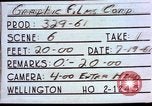 GRAPHIC FILMS CORP.
PROD: 329-61
SCENE: 6 TAKE: 1
FEET: 20-00 DATE: 7-19-61
REMARKS: 0-20-00
CAMERA: 4-00 ENTER
WELLINGTON HO 2-1